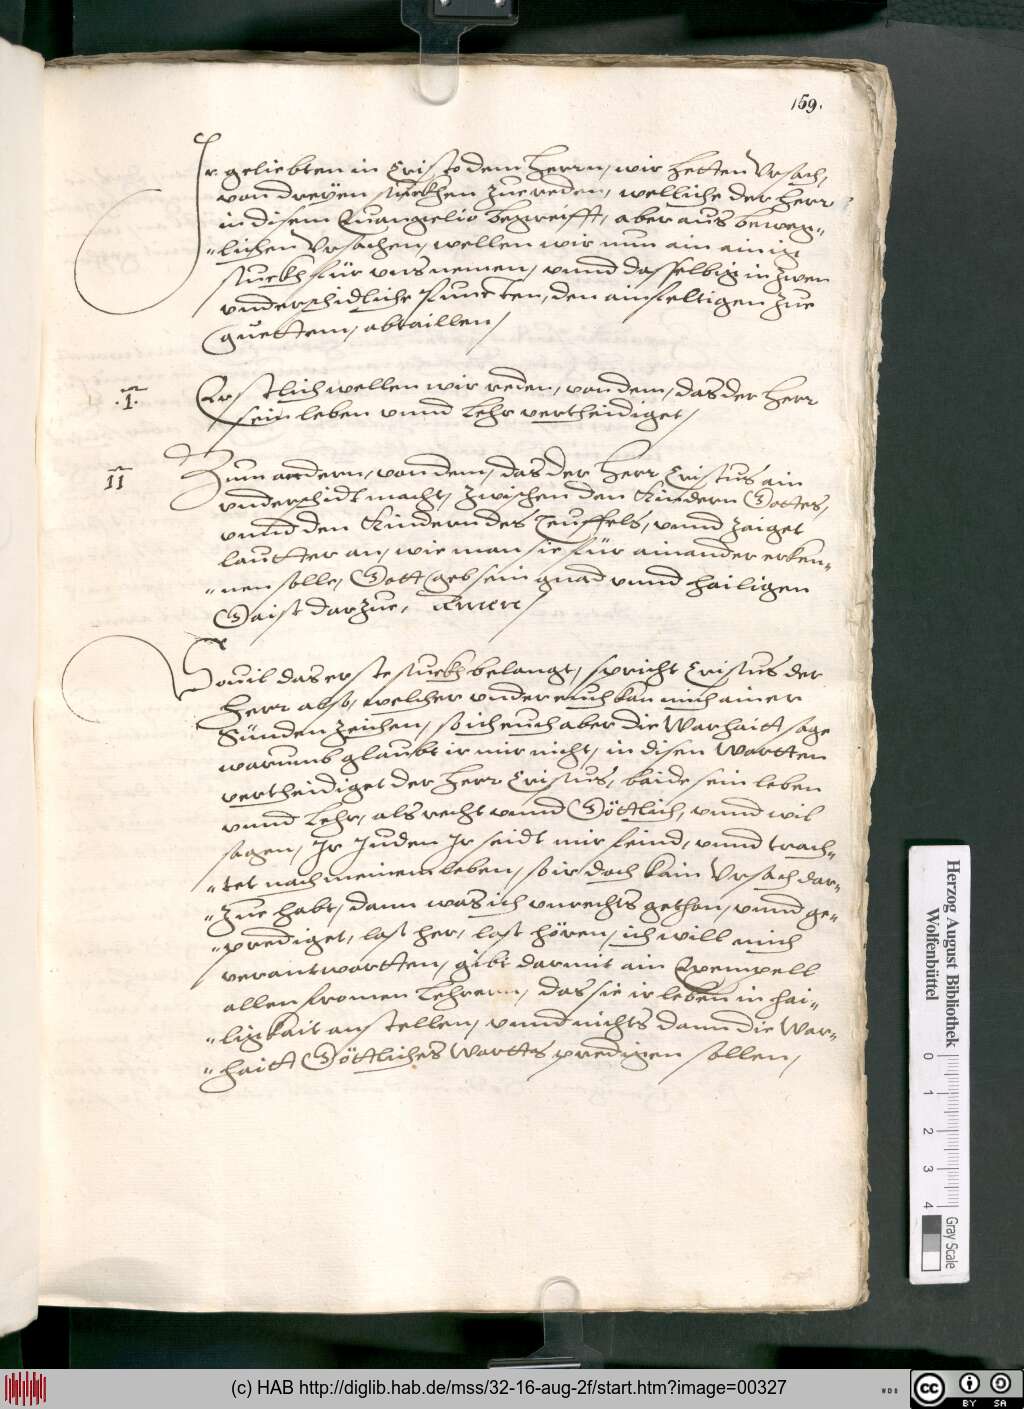 159.
Ir geliebten in Cristo dem Herrn, wir hetten Vrsach,
von dreÿen stuckhen zue reden, welliche der Herr
in disem Euangelio begreifft, aber aus beweg=
=lichen Vrsachen, wellen wir nun ain ainig
stuckh für vns nemen, vnnd dasselbig in zwen
vnderschidliche Puncten, den ainfeltigen zue
guettem, abtaillen,
.1.
Erstlich wellen wir reden, von dem, das der Herr
sein leben vnnd Lehr vertheidiget,
II
Zum andern, von dem, das der Herr Cristus ain
vnderschidt macht, zwischen den Kindern Gottes,
vnnd den Kindern des Teuffels, vnnd zaiget
lautter an, wie man sie für ainander erken=
=nen solle, Gott geb sein gnad vnnd hailigen
Gaist darzue, Amen,
Souil das erste stuckh belangt, spricht Cristus der
Herr also, welcher vnder euch kan mich ainer
Sünden zeichen, so ich euch aber die Warhait sage
warumb glaubt ir mir nicht, in disen Wortten
vertheidiget der Herr Cristus, baide sein leben
vnnd Lehr, als recht vnnd Göttlich, vnnd wil
sagen, Ir Juden Ir seidt mir feind, vnnd trach=
=tet nach meinem leben, so ir doch kain Vrsach dar=
=zue habt, dann was ich vnrechts gethon, vnnd ge=
=prediget, last her, last hören, ich will mich
verantwortten, gibt darmit ain Exempell
allen fromen Lehrern, das sie ir leben in hai=
=ligkait anstellen, vnnd nichts dann die War=
=haitt Göttliches Wortts predigen sollen,
Herzog August Bibliothek
Wolfenbüttel
0 1 2 3 4
Gray Scale
(c) HAB http://diglib.hab.de/mss/32-16-aug-2f/start.htm?image=00327
cc BY SA